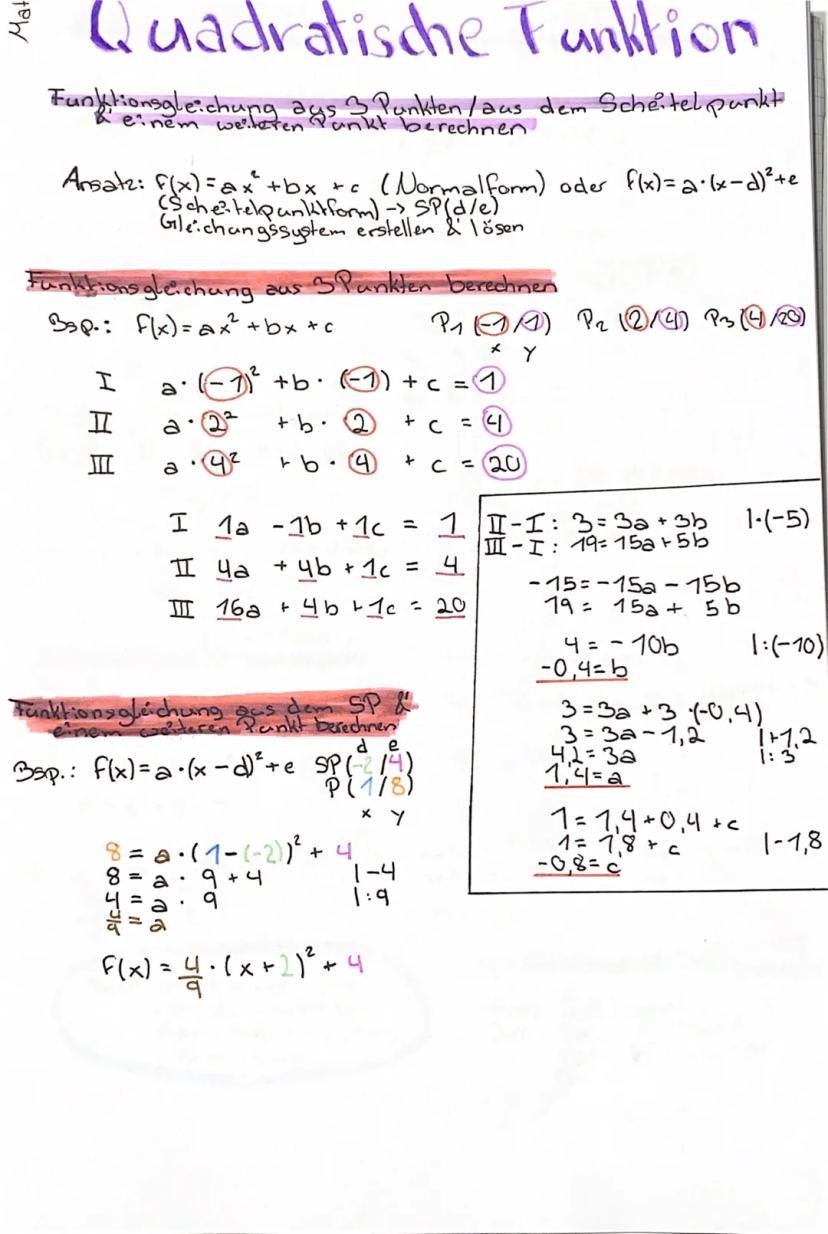 Mat
Quadratische Funktion
Funktionsgleichung aus 3 Punkten/aus dem Scheitelpunkt
& einem weiteren Punkt berechnen
Ansatz: f(x) = ax² + bx + c (Normalform) oder f(x) = a·(x-d)²+e
(Scheitelpunktform) → SP(d/e)
Gleichungssystem erstellen & lösen
Funktionsgleichung aus 3 Punkten berechnen
Bsp.: f(x) = ax² + bx + c P1 (-1/1) P2 (2/4) P3 (4/20)
x y
I a · (-1)² + b · (-1) + c = 1
II a · 2² + b · 2 + c = 4
III a · 4² + b · 4 + c = 20
I 1a - 1b + 1c = 1
II 4a + 4b + 1c = 4
III 16a + 4b + 1c = 20
II - I : 3 = 3a + 3b |·(-5)
III - I : 19 = 15a + 5b
-15 = -15a - 15b
19 = 15a + 5b
4 = - 10b |:(-10)
-0,4 = b
3 = 3a + 3 ·(-0,4)
3 = 3a - 1,2 |+1,2
4,2 = 3a |: 3
1,4 = a
1 = 1,4 + 0,4 + c
1 = 1,8 + c |-1,8
-0,8 = c
Funktionsgleichung aus dem SP &
einem weiteren Punkt berechnen
d e
Bsp.: f(x) = a·(x-d)²+e SP(-2/4)
P(1/8)
x y
8 = a · (1-(-2))² + 4
8 = a · 9 + 4 |-4
4 = a · 9 |:9
4/9 = a
f(x) = 4/9 · (x+2)² + 4